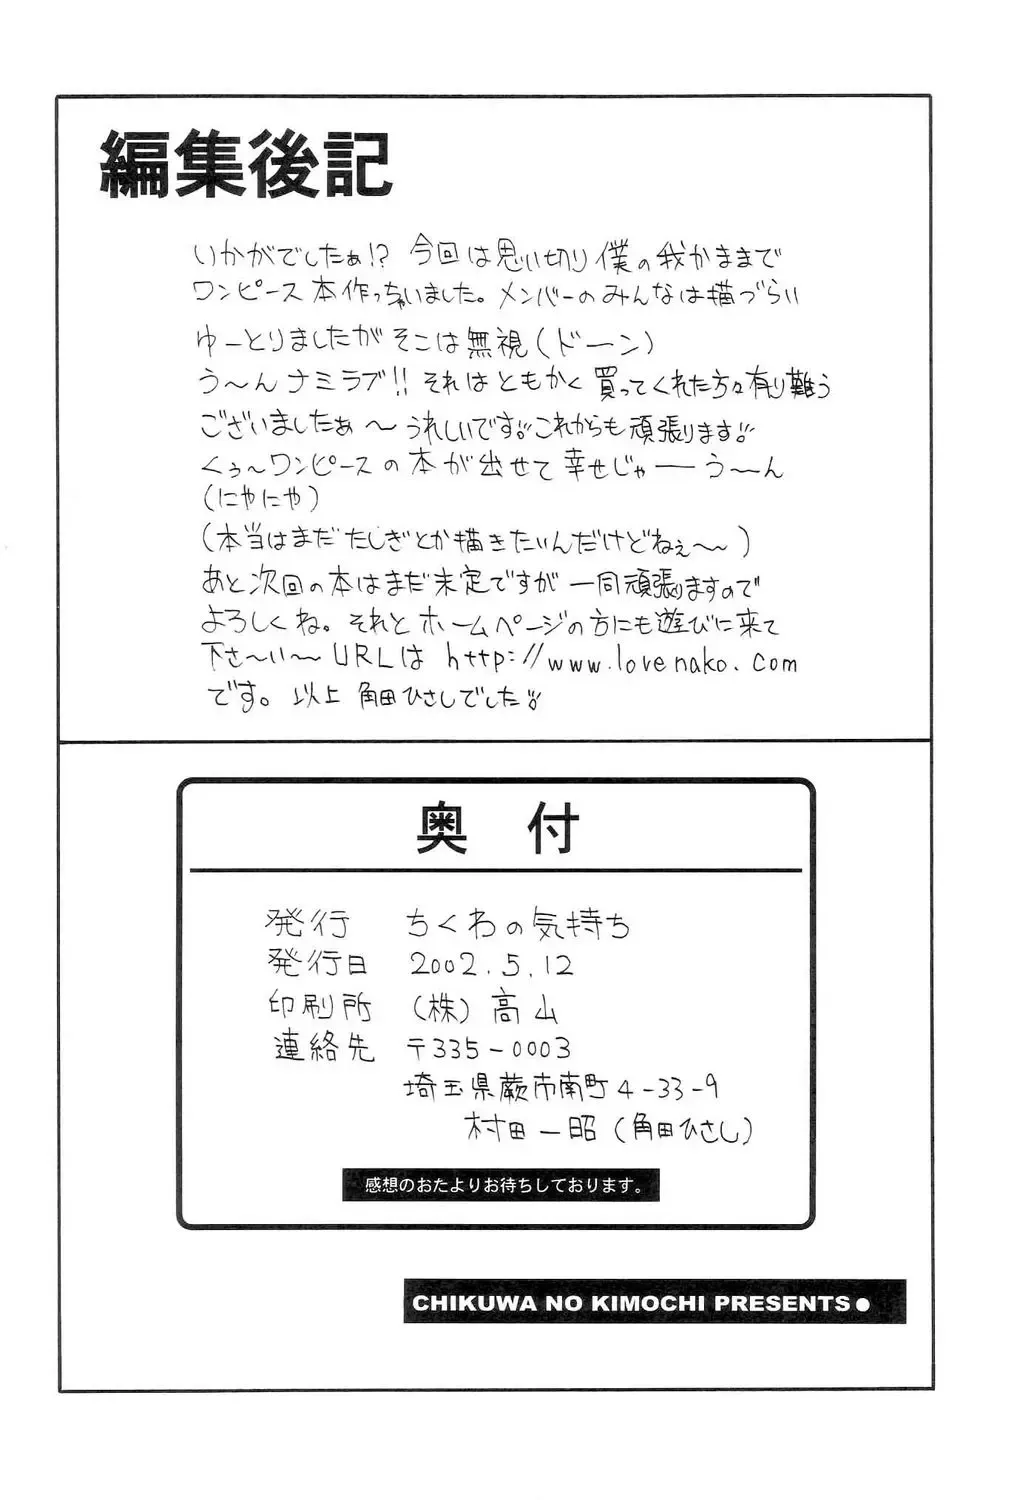 編集後記
いかがでしたぁ!? 今回は思い切り僕の我がままで
ワンピース本作っちゃいました。メンバーのみんなは描づらい
ゆーとりましたがそこは無視(ドーン)
う〜んナミラブ!! それはともかく買ってくれた方々有り難う
ございましたぁ〜うれしいです!!これからも頑張ります!!
くぅ〜ワンピースの本が出せて幸せじゃーーう〜ん
(にやにや)
(本当はまだたしぎとか描きたいんだけどねぇ〜)
あと次回の本はまだ未定ですが一同頑張りますので
よろしくね。それとホームページの方にも遊びに来て
下さ〜い〜URLは http://www.lovenako.com
です。以上 角田ひさしでした!!
奥 付
発行 ちくわの気持ち
発行日 2002.5.12
印刷所 (株)高山
連絡先 〒335-0003
埼玉県蕨市南町4-33-9
村田一昭(角田ひさし)
感想のおたよりお待ちしております。
CHIKUWA NO KIMOCHI PRESENTS●